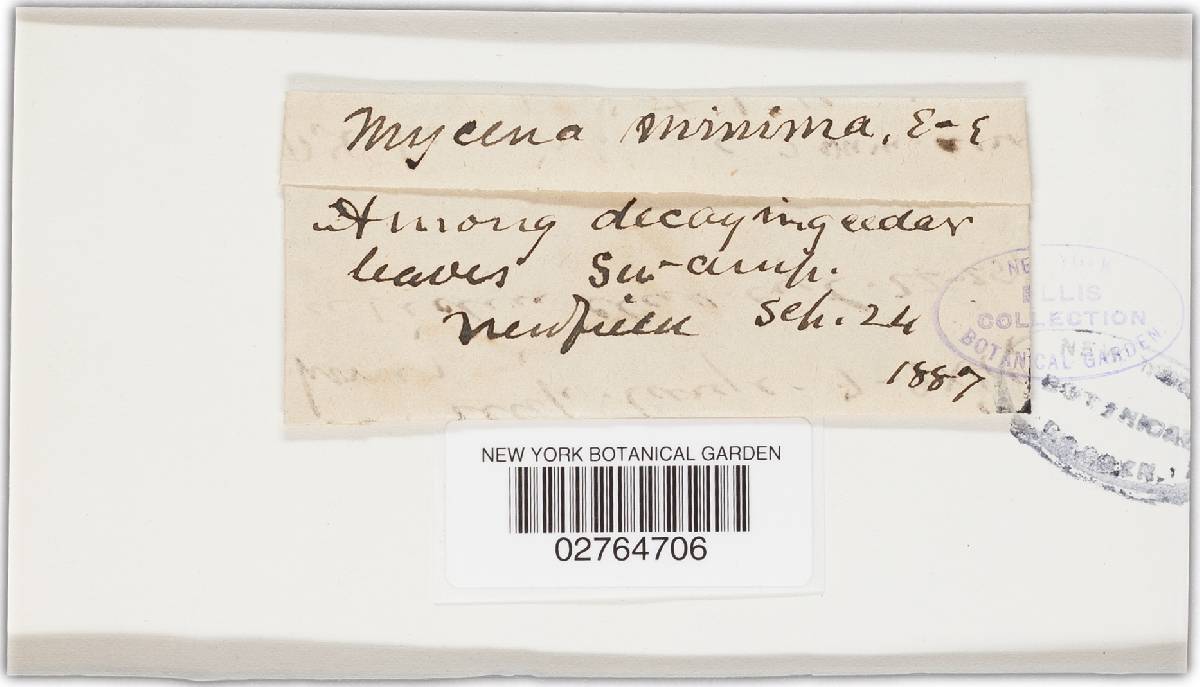 Mycena minima, E-E
Among decaying cedar
leaves Swamp.
Newfield Sep. 24
1887
NEW YORK
ELLIS
COLLECTION
BOTANICAL GARDEN.
NEW
BOTANICAL
GARDEN.
NEW YORK BOTANICAL GARDEN
02764706